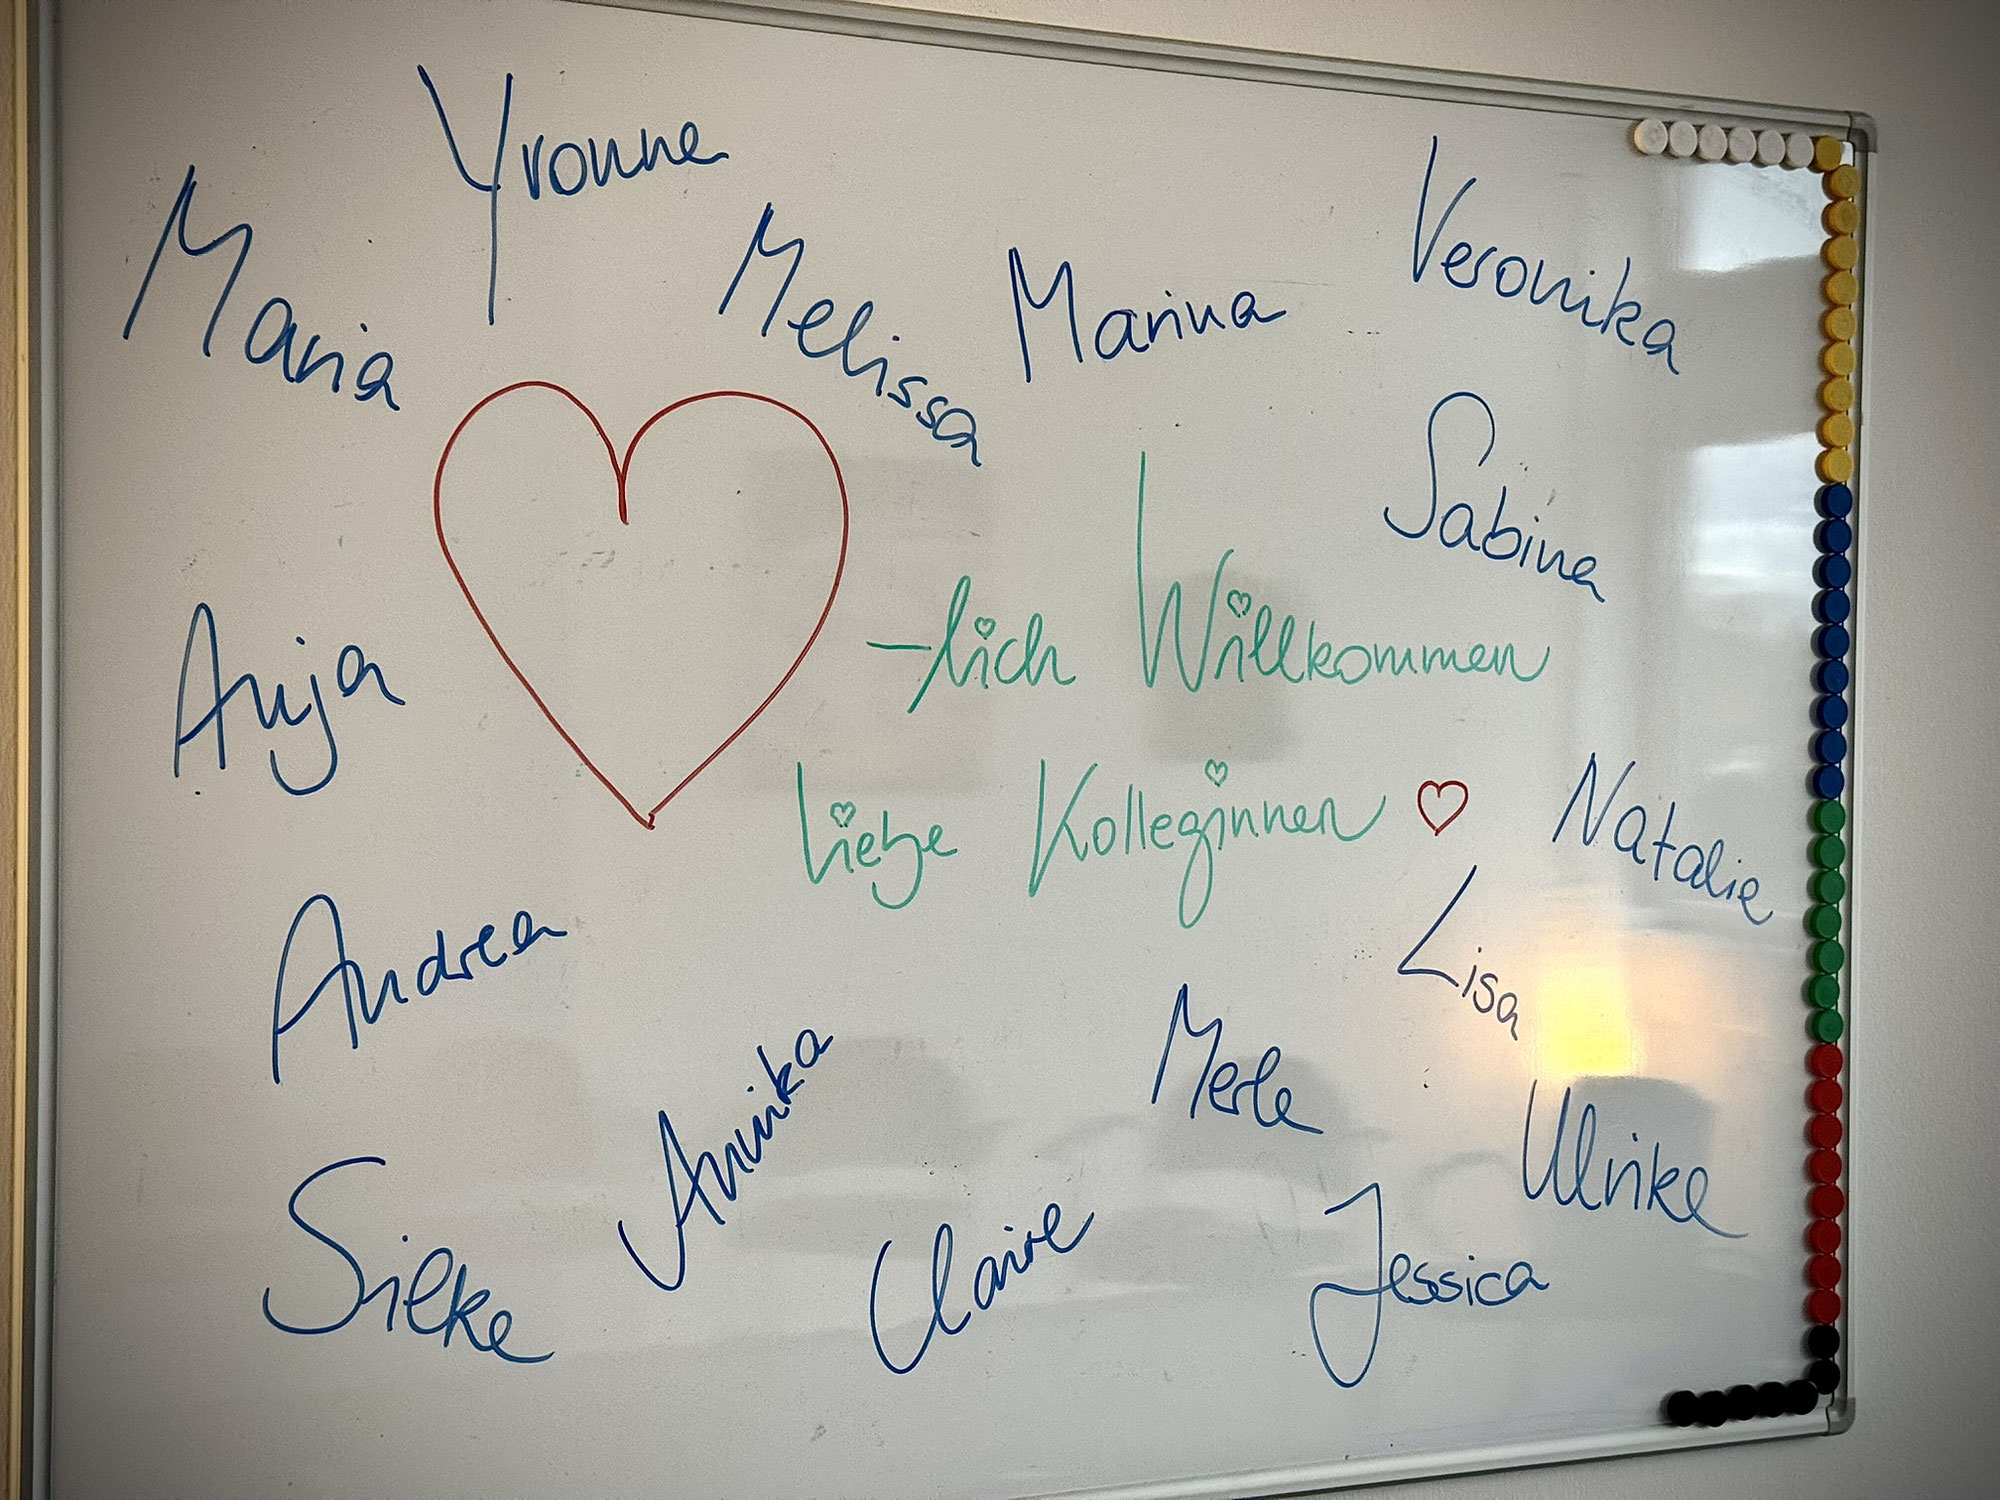 Yvonne
Maria
Melissa
Marina
Veronika
Sabina
-lich Willkommen
Anja
liebe Kolleginnen
Natalie
Lisa
Andrea
Merle
Annika
Ulrike
Silke
Claire
Jessica